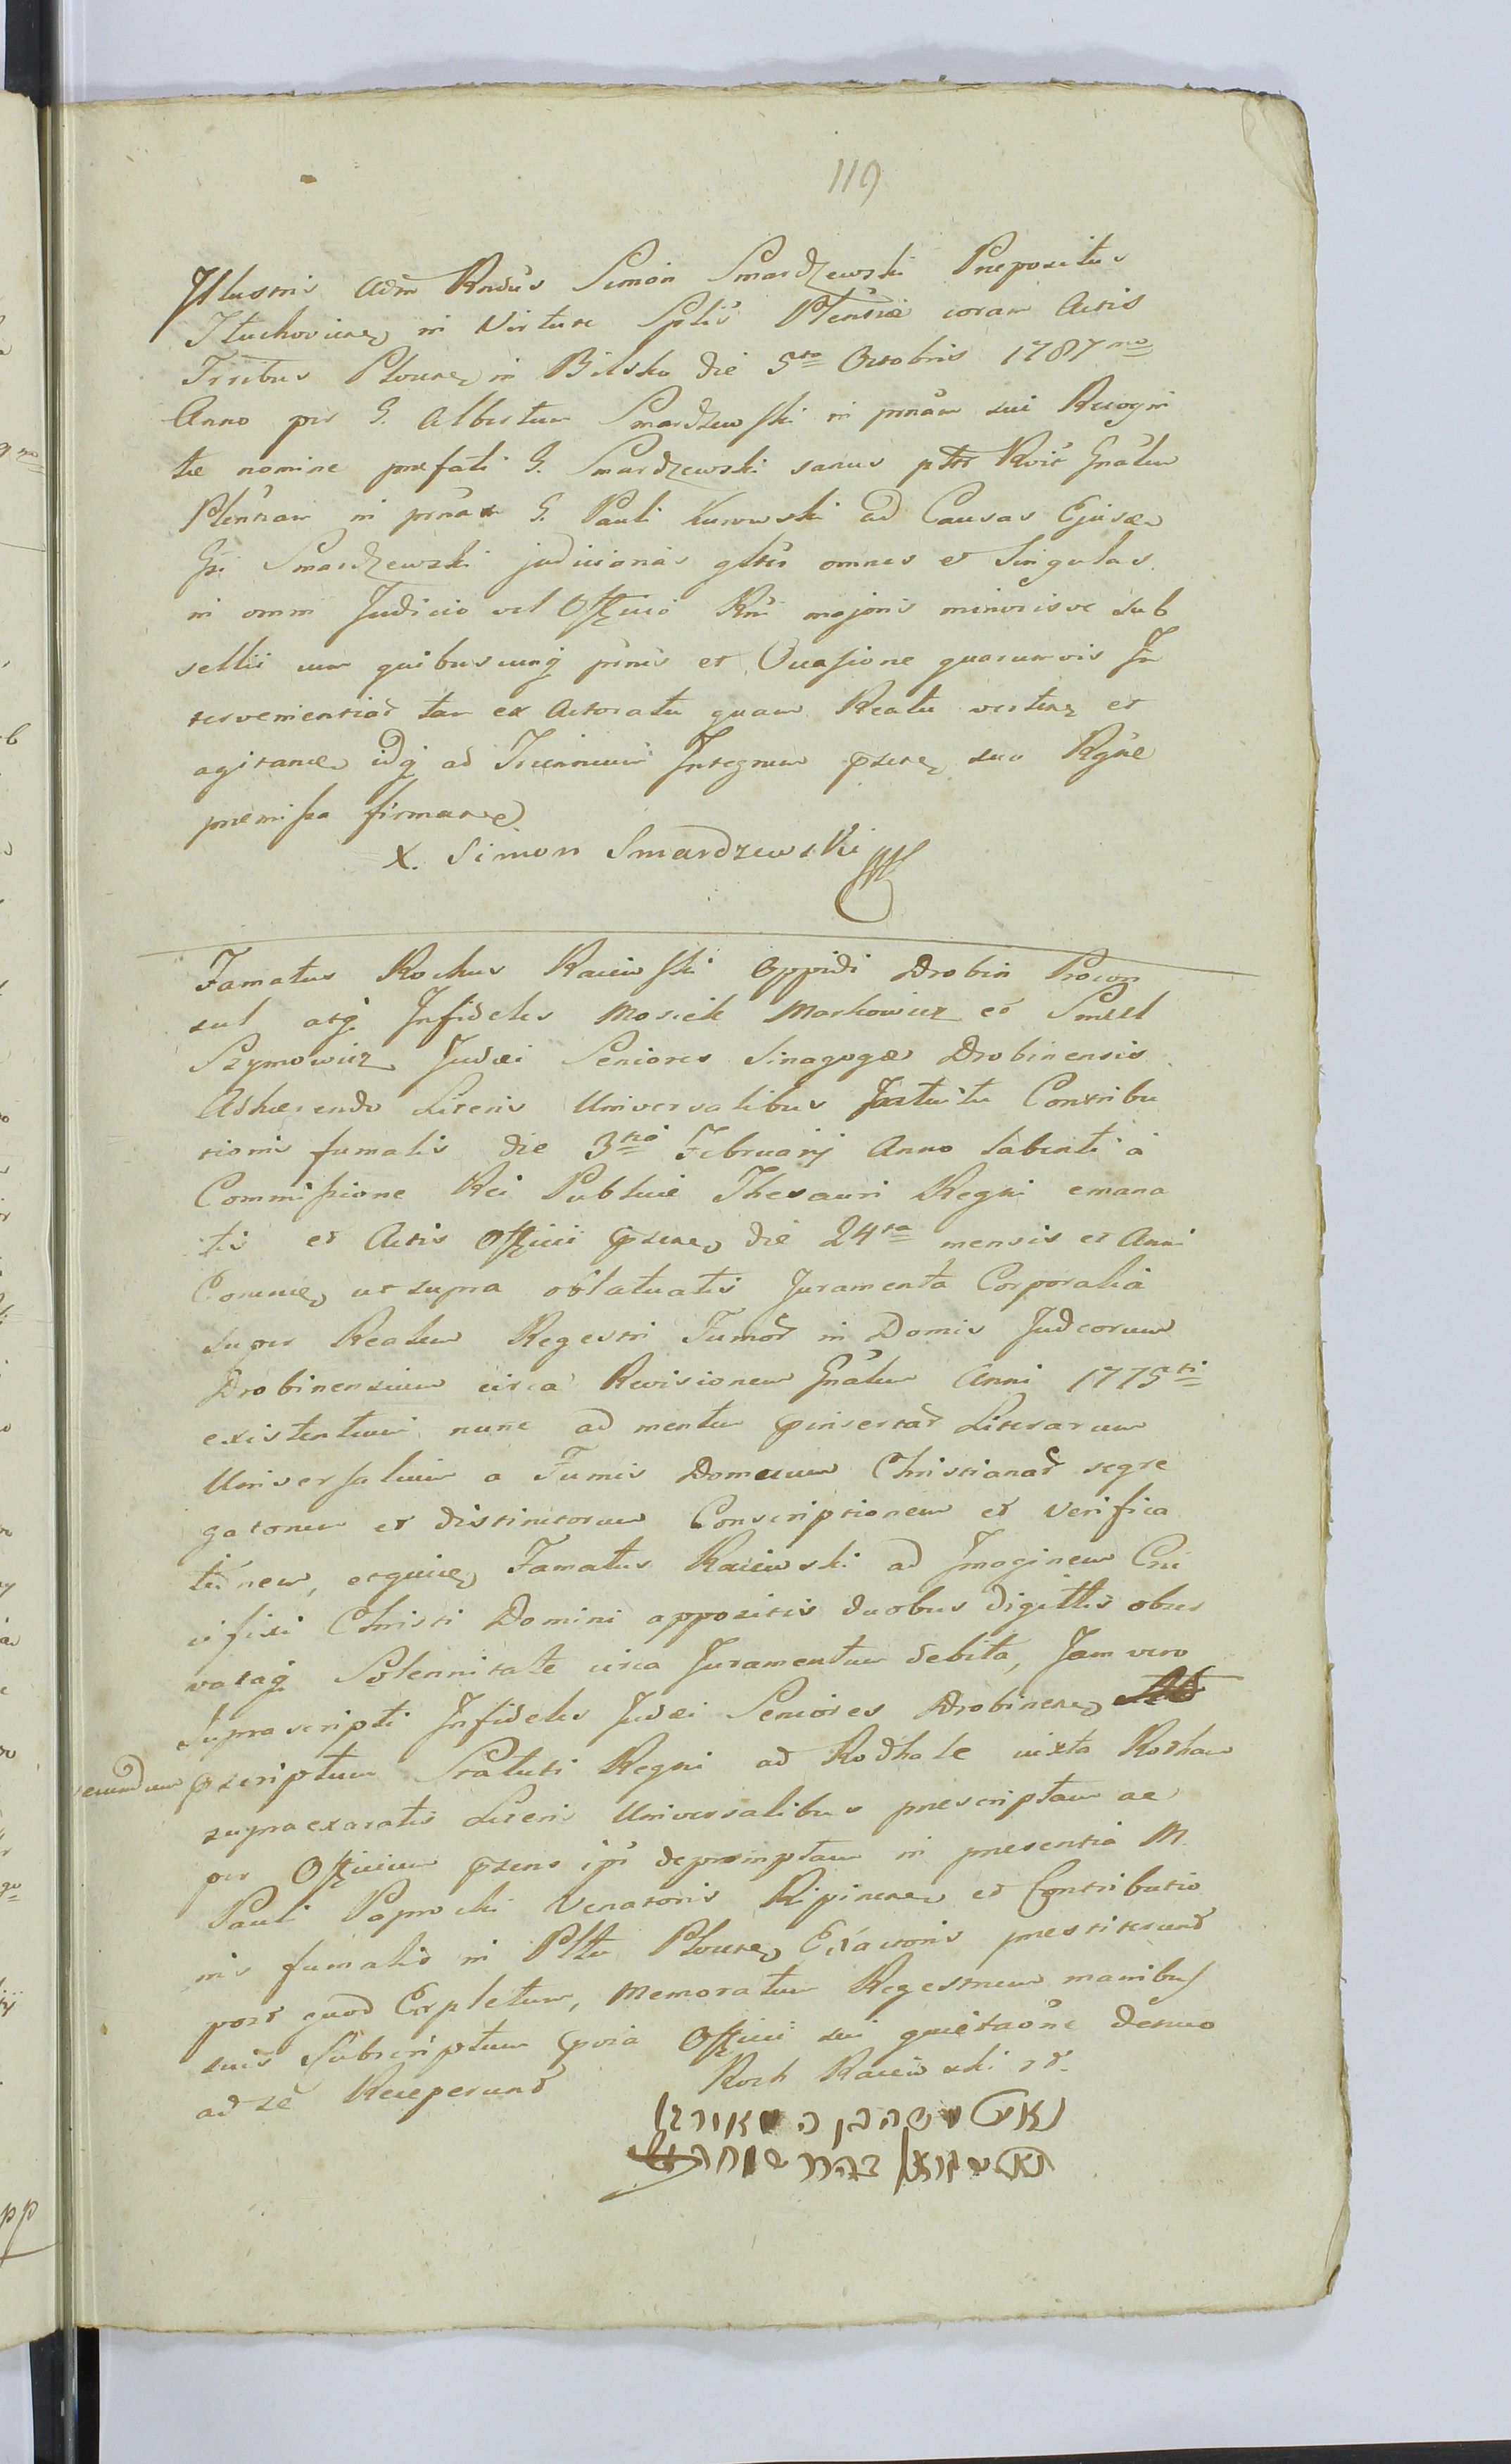 119
Illustris Adm Rndus Simon Smardzewski Prepositus
Tłuchovicen in Virtute Splis Plentiæ coram Actis
Trribus Plocen in Bilsku die 5ta Octobris 1787mo
Anno per G. Albertum Smardzewski in pnam sui Recogni
tæ nomine præfati G. Smardzewski sanus ptr Rvit Gnalem
Plenttam in pnam G. Pauli Kurowski ad Causas Ejusdem
Gsi Smardzewski judiciarias gltis omnes et Singulas
in omni Judicio vel Officio Rni majoris minorisve sub
sellii cum quibuscunq pnis et Occasione quarumvis In
tervenientiar tam ex Actoratu quam Reatu verten et
agitand idq ad Triennium Integrum psens suo Rgne
premissa firmare
X. Simon Smardzewski
Famatus Rochus Raciewski Oppidi Drobin Procon
sul atq Infideles Mosiek Markowicz et Smul
Szymowicz Judæi Seniores Sinagogæ Drobinensis
Adhærendo Literis Universalibus Intuitu Contribu
tionis fumalis die 3tia Februarij Anno labenti à
Commissione Rei Publicæ Thesauri Regni emana
tis et Actis Officii psen die 24ta mensis et Anni
Coram ut supra oblatuatis Juramenta Corporalia
super Realem Regestri Fumor in Domis Judeorum
Drobinensium circa Revisionem Gnalem Anni 1775ti
existentium nunc ad mentem pinsertar Literarum
Universalium a Fumis Domorum Christianar segre
gatorum et distinctorum Conscriptionem et Verifica
tionem, et quidem Famatus Raciewski ad Imaginem Cru
cifixi Christi Domini appositis duobus digittis obser
vataq Solennitate circa Juramentum debita, Jam vero
Suprascripti Infideles Judæi Seniores Drobinen
secundum pscriptum Statuti Regni ad Rodhale iuxta Rotham
supra exaratis Literis Universalibus prescriptam ac
per Officium psens ipsis depromptam in presentia M.
Pauli Paprocki Venatoris Ripinen et Contributio
nis fumalis in Pltu Plocen Exactoris prestiterunt
post quod Expletum, Memoratum Regestrum manibus
suis Subscriptum pvia Officii sui quietaone denuo
ad se Receperunt
Roch Raciewski